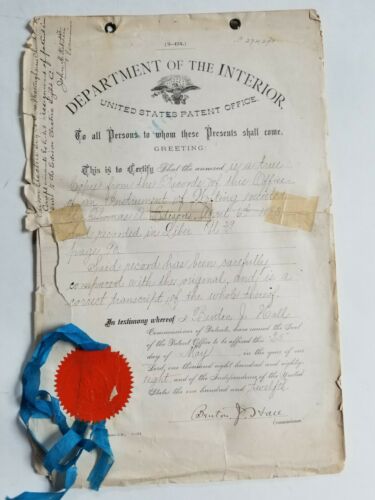 (3—434.)
DEPARTMENT OF THE INTERIOR,
UNITED STATES PATENT OFFICE.
To all Persons to whom these Presents shall come,
GREETING:
This is to Certify That the annexed is a true
Copy from the Records of this Office
of an Instrument of Writing executed
by Thomas A. Edison, April 6th
and recorded in Liber
page
Said record has been carefully
compared with the original, and is a
correct transcript of the whole thereof.
In testimony whereof I Benton J. Hall
Commissioner of Patents, have caused the Seal
of the Patent Office to be affixed this 25th
day of May in the year of our
Lord, one thousand eight hundred and eighty-
eight and of the Independence of the United
States the one hundred and twelfth
Benton J. Hall
Commissioner.